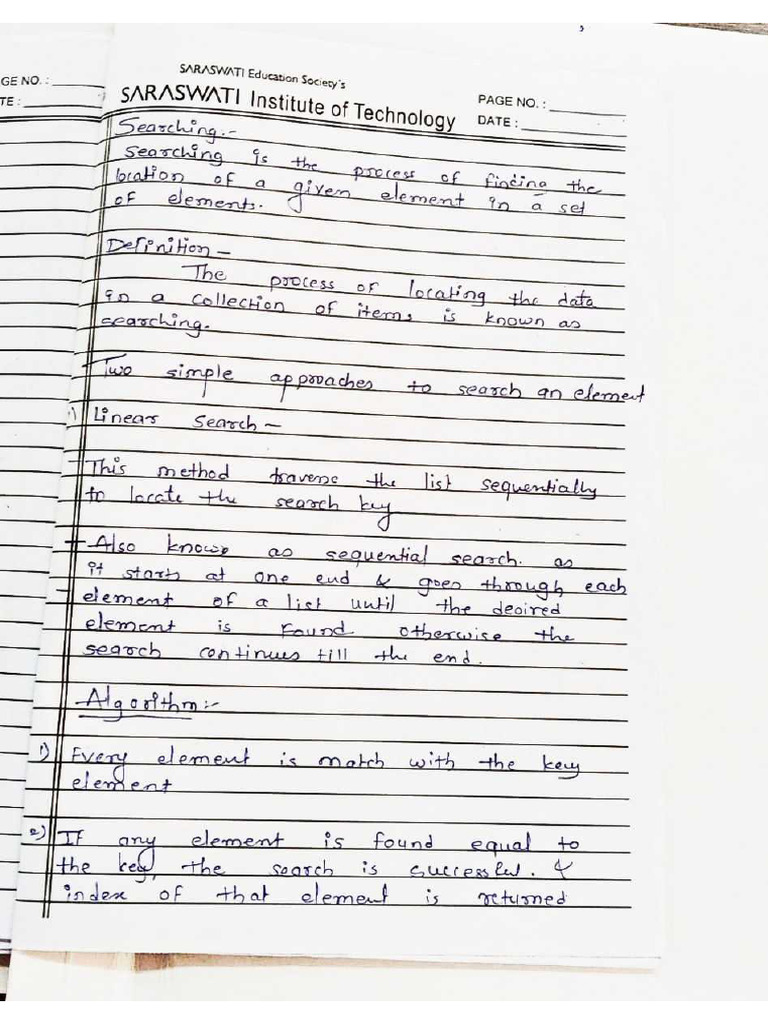 SARASWATI Education Society's
GE NO. :
SARASWATI Institute of Technology
PAGE NO. :
TE :
DATE :
Searching :-
Searching is the process of finding the
location of a given element in a set
of elements.
Definition –
The process of locating the data
in a collection of items is known as
searching.
Two simple approaches to search an element
1) Linear Search –
This method traverse the list sequentially
to locate the search key
Also known as sequential search. as
it starts at one end & goes through each
element of a list until the desired
element is found otherwise the
search continues till the end.
Algorithm :-
1) Every element is match with the key
element
2) If any element is found equal to
the key, the search is successful. &
index of that element is returned